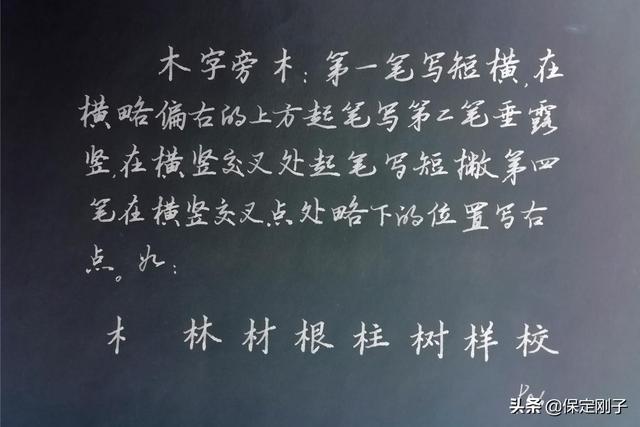 木字旁木：第一笔写短横，在
横略偏右的上方起笔写第二笔垂露
竖，在横竖交叉处起笔写短撇第四
笔在横竖交叉点处略下的位置写右
点。如：
木 林 材 根 柱 树 样 校
头条 @保定刚子